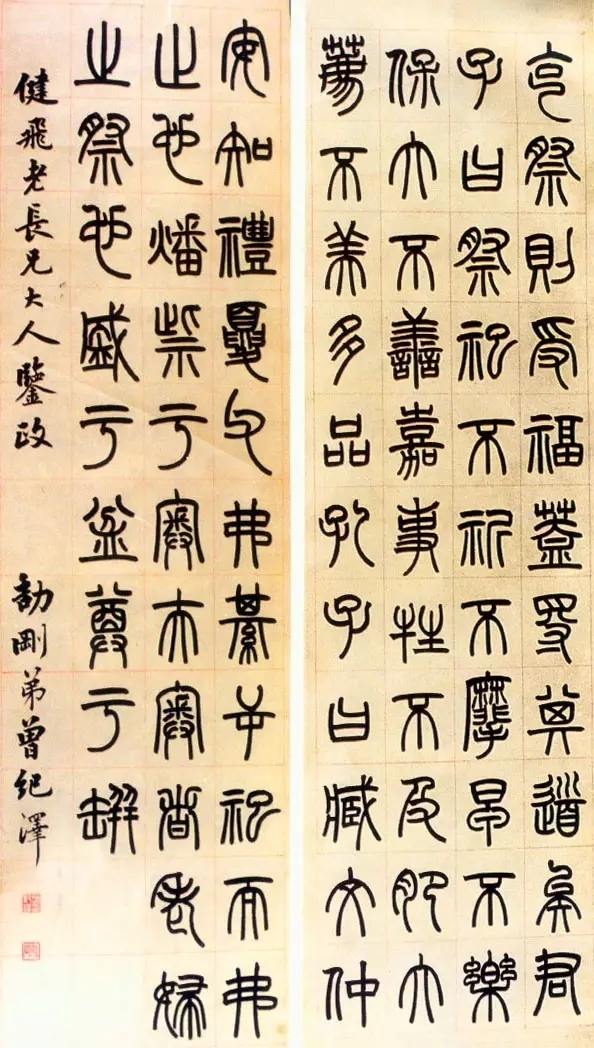 亯祭則受福蓋得其道矣君
子曰祭祀不祈不麾早不樂
保大不善嘉事牲不及肥大
薦不美多品孔子曰臧文仲
安知禮夏父弗綦屰祀而弗
止也燔柴亏奧夫奧者老婦
之祭也盛亏盆尊亏缾
健飛老長兄大人鑒政 劼剛弟曾紀澤